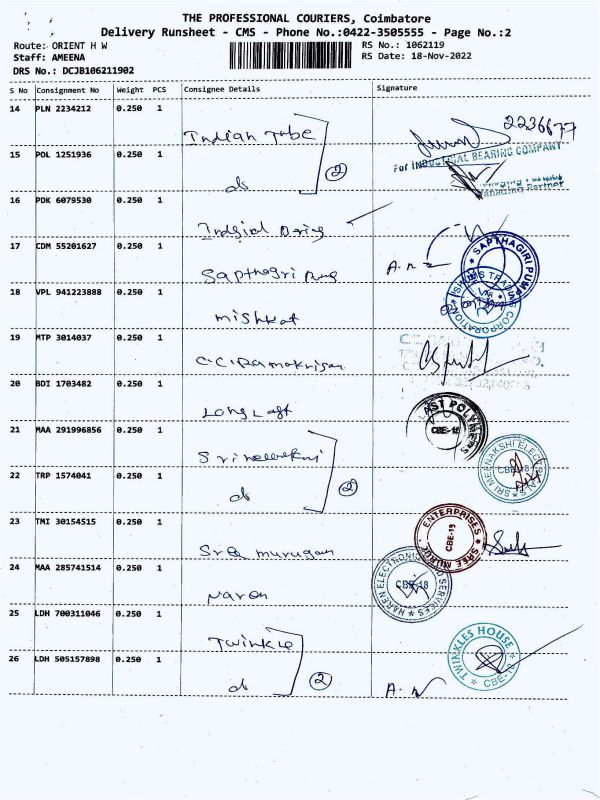 THE PROFESSIONAL COURIERS, Coimbatore
Delivery Runsheet - CMS - Phone No.:0422-3505555 - Page No.:2
Route: ORIENT H W
RS No.: 1062119
Staff: AMEENA
RS Date: 18-Nov-2022
DRS No.: DCJB106211902
S No Consignment No Weight PCS Consignee Details Signature
14 PLN 2234212 0.250 1 Indian Tube 2236677
For INDUSTRIAL BEARING COMPANY
15 POL 1251936 0.250 1 do 2
Managing Partner
16 PDK 6079530 0.250 1
17 CDM 55201627 0.250 1 Sapthagiri Pump A.n
SAPTHAGIRI PUMPS
18 VPL 941223888 0.250 1 mishkat
CORPORATION
19 MTP 3014037 0.250 1 C.C. Ramakrisan
20 BDI 1703482 0.250 1 Long Last
LAST POLYMERS
CBE-18
21 MAA 291996856 0.250 1
SRI MEENAKSHI ELECTRICALS
CBE-18
22 TRP 1574041 0.250 1 do 2
23 TMI 30154515 0.250 1 Sree murugan
ENTERPRISES
CBE-18
24 MAA 285741514 0.250 1 Naren
NAREN ELECTRONIC AND SERVICES
CBE-18
25 LDH 700311046 0.250 1 Twinkle
TWINKLES HOUSE
CBE-18
26 LDH 505157898 0.250 1 do 2 A.N